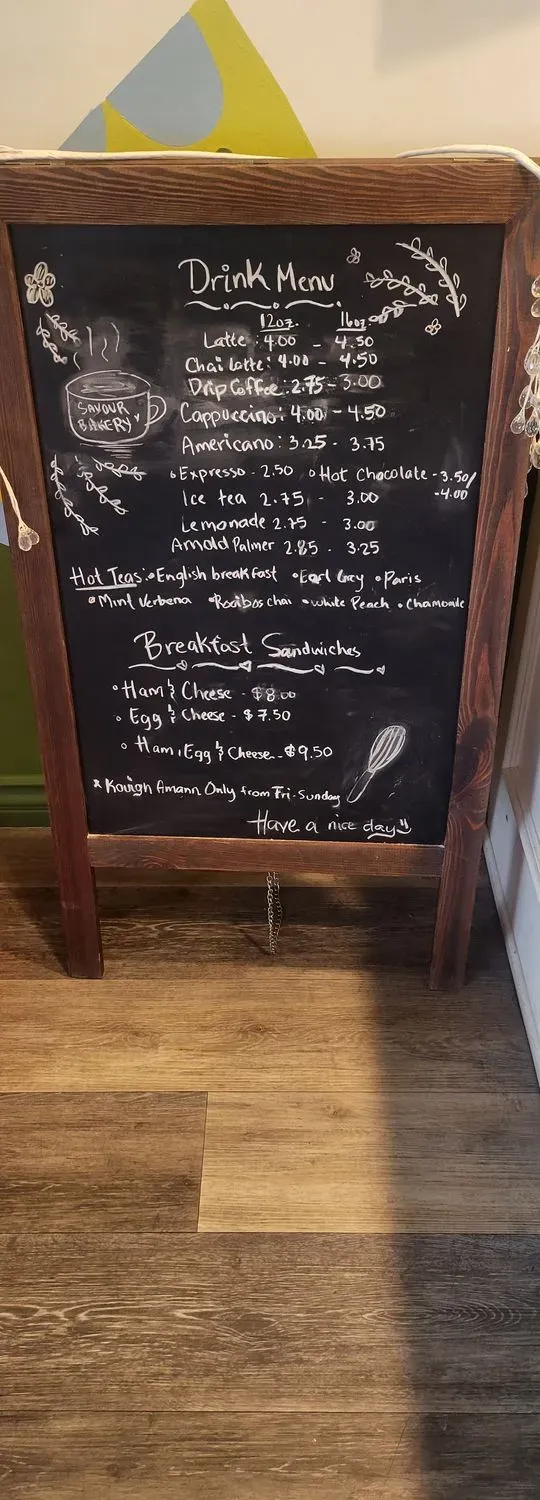 Drink Menu
12oz. 16oz.
Latte : 4.00 - 4.50
Chai Latte : 4.00 - 4.50
Drip Coffee : 2.75 - 3.00
SAVOUR
BAKERY
Cappuccino : 4.00 - 4.50
Americano : 3.25 - 3.75
Expresso - 2.50 Hot Chocolate - 3.50/
-4.00
Ice tea 2.75 - 3.00
Lemonade 2.75 - 3.00
Arnold Palmer 2.85 - 3.25
Hot Teas: English breakfast Earl Grey Paris
Mint Verbena Rooibos chai White Peach
Breakfast Sandwiches
Ham & Cheese - $8.00
Egg & Cheese - $7.50
Ham, Egg & Cheese - $9.50
* Kouign Amann Only from Fri-Sunday
Have a nice day